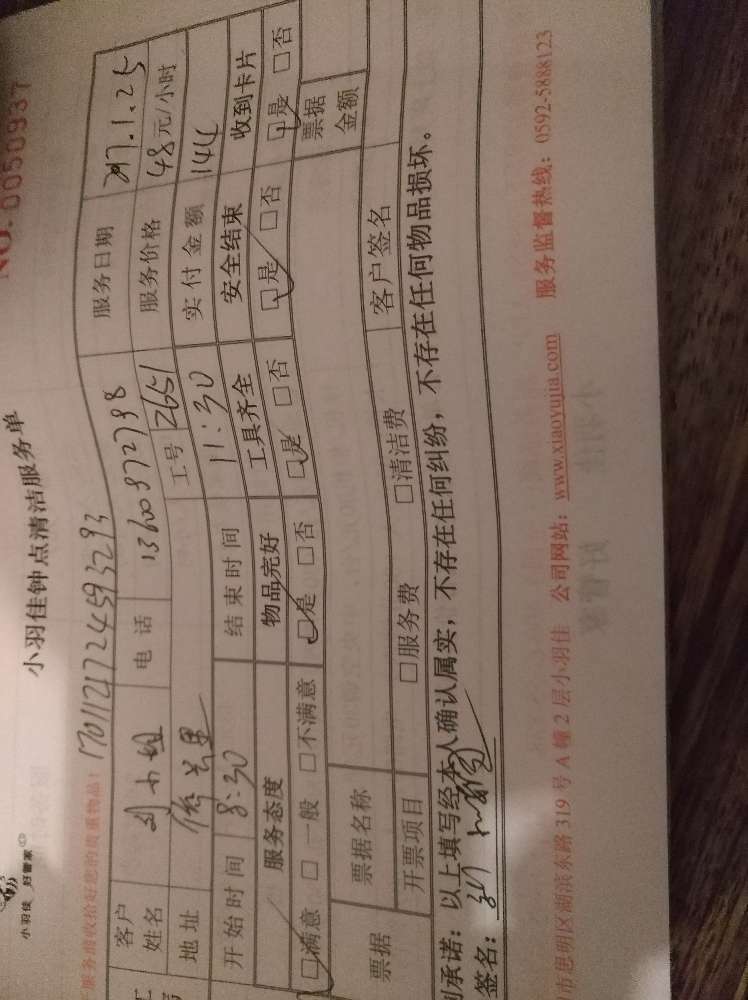 NO: 0050937
小羽佳 好管家
小羽佳钟点清洁服务单
服务前收拾好您的贵重物品! 1701121724593293
客户姓名 刘小姐 电话 13600972798 服务日期 2017.1.25
地址 工号 2651 服务价格 48元/小时
开始时间 8:30 结束时间 11:30 实付金额 144
服务态度 物品完好 工具齐全 安全结束 收到卡片
□满意 □一般 □不满意 □是 □否 □是 □否 □是 □否 □是 □否
票据 票据名称 票据金额
开票项目 □服务费 □清洁费 客户签名
承诺：以上填写经本人确认属实，不存在任何纠纷，不存在任何物品损坏。
签名：
市思明区湖滨东路 319 号 A 幢 2 层小羽佳 公司网站：www.xiaoyujia.com 服务监督热线：0592-5888123